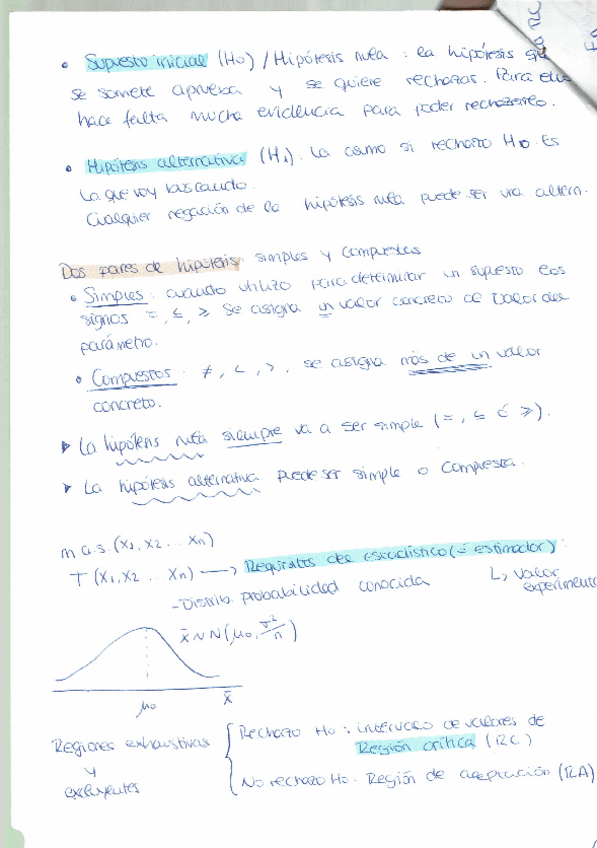 • Supuesto inicial (H0) / Hipótesis nula : la hipótesis que
se somete aprueba y se quiere rechazar. Para ello
hace falta mucha evidencia para poder rechazarlo.
• Hipótesis alternativa (H1). La asumo si rechazo H0. Es
la que voy buscando.
Cualquier negación de la hipótesis nula puede ser una altern.
Dos pares de hipótesis: simples y compuestas
• Simples: cuando utilizo para determinar un supuesto los
signos =, ≤, ≥ Se asigna un valor concreto al valor del
parámetro.
• Compuestos: ≠, <, >, se asigna más de un valor
concreto.
➤ La hipótesis nula siempre va a ser simple (=, ≤ ó ≥).
➤ La hipótesis alternativa puede ser simple o compuesta.
m.a.s. (X1, X2 ... Xn)
T (X1, X2 ... Xn) → Requisitos del estadístico (= estimador):
- Distrib. probabilidad conocida
↳ Valor
experimento
x̄ ~ N(μ0, σ²/n)
μ0 x̄
Regiones exhaustivas
y
excluyentes
Rechazo H0: intervalo de valores de
Región crítica (RC)
No rechazo H0: Región de aceptación (RA)